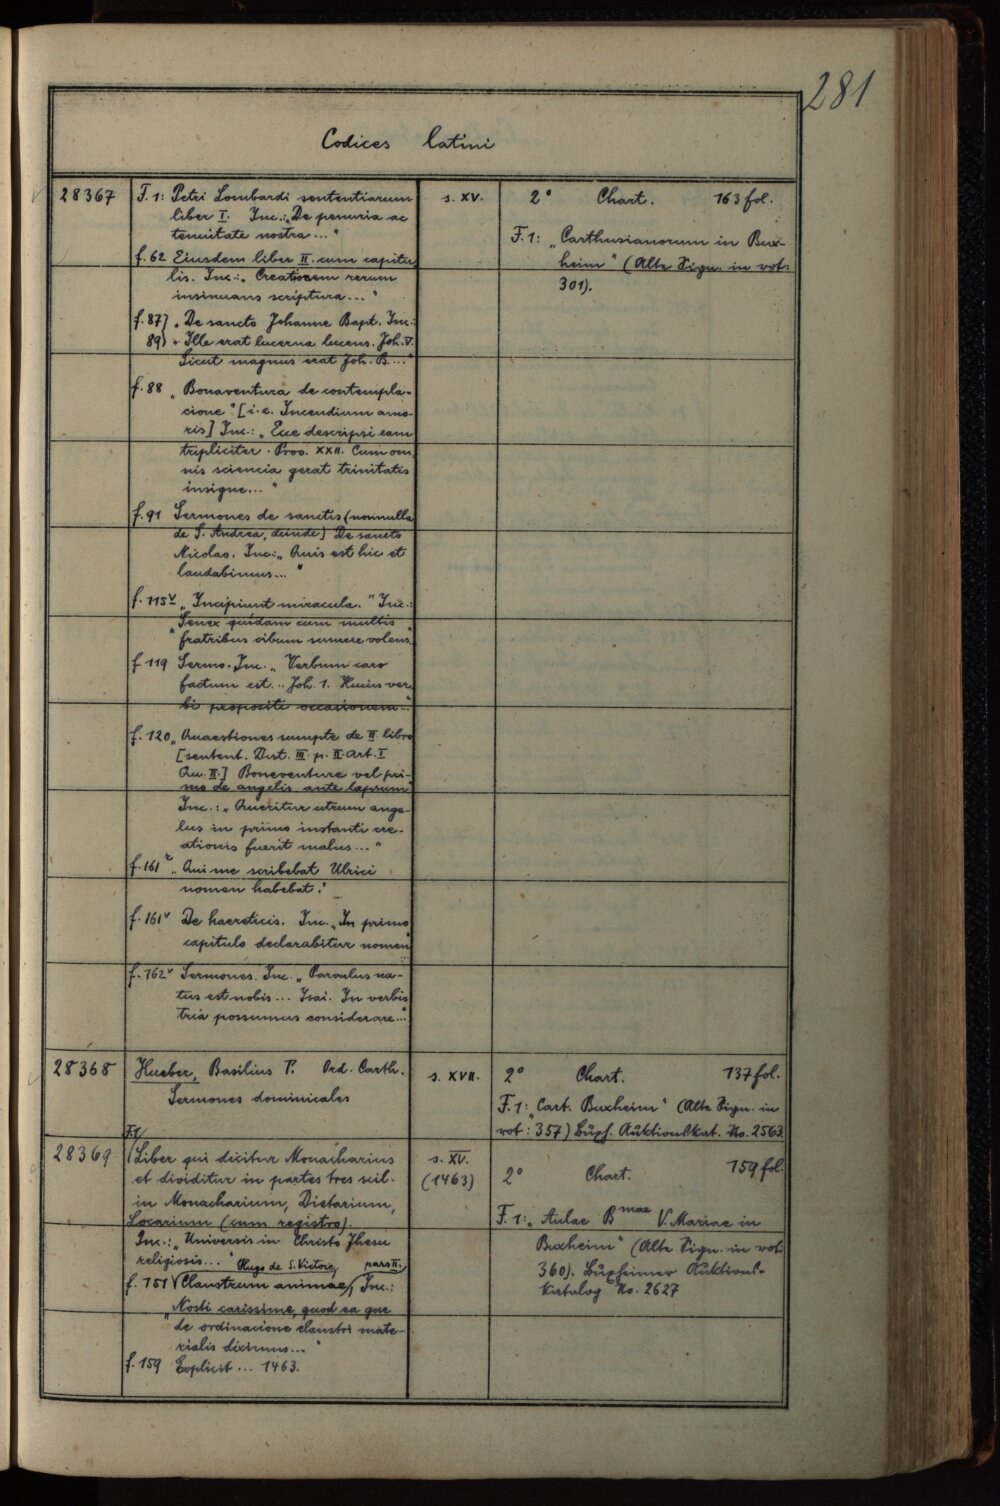 281
Codices latini
28367
F. 1: Petri Lombardi sententiarum
liber I. Inc.: „De penuria ac
tenuitate nostra ..."
f. 62 Eiusdem liber II. cum capitu
lis. Inc.: „Creationem rerum
insinuans scriptura ..."
f. 87) „De sancto Johanne Bapt. Inc.:
89) „Ille erat lucerna lucens. Joh. V.
Sicut magnus erat Joh. B. ..."
f. 88 „Bonaventura de contempla-
cione" [i. e. Incendium amo-
ris] Inc.: „Ecce descripsi eam
tripliciter. Prov. XXII. Cum om
nis sciencia gerat trinitatis
insigne..."
f. 91 Sermones de sanctis (nonnulla
de S. Andrea, deinde) De sancto
Nicolao. Inc.: „Quis est hic et
laudabimus..."
f. 115v „Incipiunt miracula." Inc.:
„Senex quidam cum multis
fratribus cibum sumere volens"
f. 119 Sermo. Inc. „Verbum caro
factum est .. Joh. 1. Huius ver
bi propositi occasionem .."
f. 120 „Quaestiones sumpte de II libro
[sentent. Dist. III. p. II. Art. I
Qu. II.] Boneventure vel pri-
mo de angelis ante lapsum"
Inc.: „Queritur utrum ange-
lus in primo instanti cre-
ationis fuerit malus ..."
f. 161r „Qui me scribebat Ulrici
nomen habebat."
f. 161v De haereticis. Inc. „In primo
capitulo declarabitur nomen"
f. 162v Sermones. Inc. „Parvulus na-
tus est nobis ... Isai. In verbis
tria possumus considerare..."
s. XV.
2° Chart. 163 fol.
F. 1: „Carthusianorum in Bux-
heim" (Alte Sign. in rot:
301).
28368
Hueber, Basilius P. Ord. Carth.
Sermones dominicales
s. XVII.
2° Chart. 137 fol.
F. 1: „Cart. Buxheim" (Alte Sign. in
rot: 357) Buxh. Auktionskat. No. 2563
28369
F. 1
Liber qui dicitur Monacharius
et dividitur in partes tres scil.
in Monacharium, Dietarium,
Locarium (cum registro).
Inc.: „Universis in Christo Jhesu
religiosis..."
Hugo de S. Victore, pars II.
f. 151 (Claustrum animae, Inc.:
„Nosti carissime, quod ea que
de ordinacione claustri mate-
rialis diximus..."
f. 159 Explicit ... 1463.
s. XV.
(1463)
2° Chart. 159 fol.
F. 1: „Aulae Bmae V. Mariae in
Buxheim" (Alte Sign. in rot:
360). Buxheimer Auktions-
katalog No. 2627